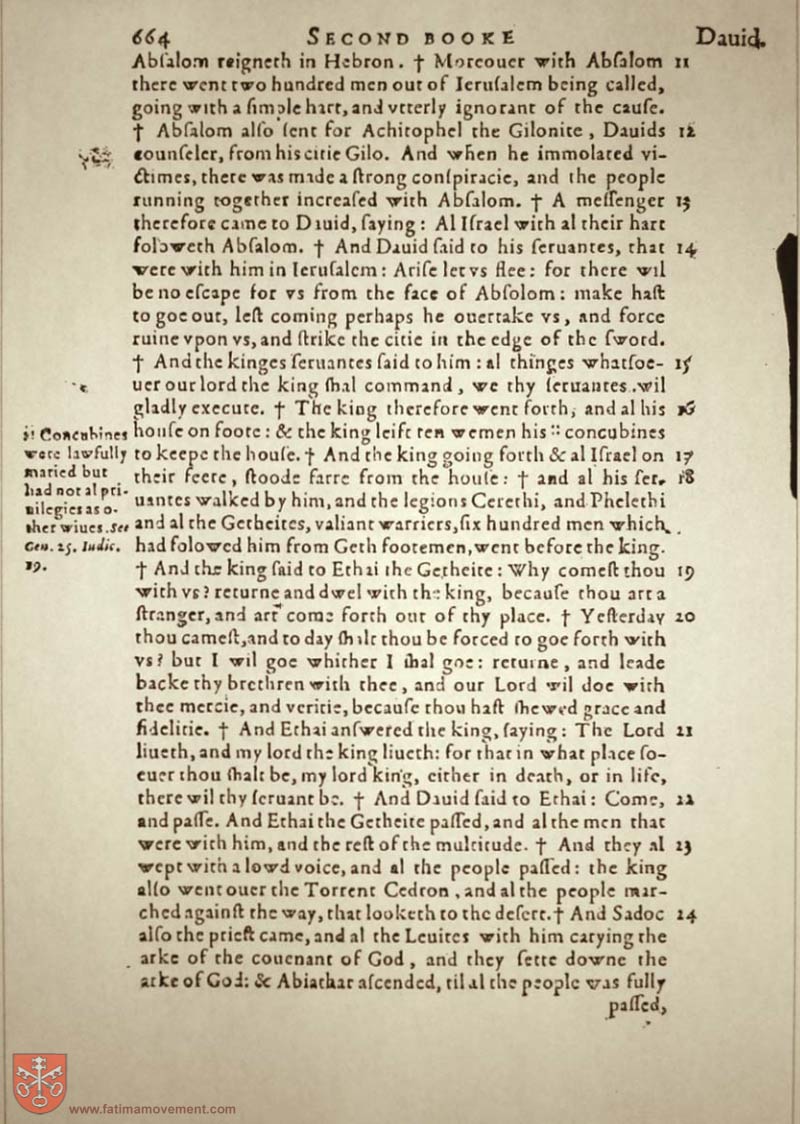 664 SECOND BOOKE Dauid.
Abſalom reigneth in Hebron. † Moreouer with Abſalom 11
there went two hundred men out of Ieruſalem being called,
going with a ſimple hart, and vtterly ignorant of the cauſe.
† Abſalom alſo ſent for Achitophel the Gilonite, Dauids 12
counſeler, from his citie Gilo. And when he immolated vi-
ctimes, there was made a ſtrong conſpiracie, and the people
running together increaſed with Abſalom. † A meſſenger 13
therefore came to Dauid, ſaying: Al Iſrael with al their hart
foloweth Abſalom. † And Dauid ſaid to his ſeruantes, that 14
were with him in Ieruſalem: Ariſe let vs flee: for there wil
be no eſcape for vs from the face of Abſolom: make haſt
to goe out, leſt coming perhaps he ouertake vs, and force
ruine vpon vs, and ſtrike the citie in the edge of the ſword.
† And the kinges ſeruantes ſaid to him: al thinges whatſoe- 15
uer our lord the king ſhal command, we thy ſeruantes wil
gladly execute. † The king therefore went forth, and al his 16
houſe on foote: & the king leift ten wemen his :: concubines
to keepe the houſe. † And the king going forth & al Iſrael on 17
their feete, ſtoode farre from the houſe: † and al his ſer- 18
uantes walked by him, and the legions Cerethi, and Phelethi
and al the Getheites, valiant warriers, ſix hundred men which
had folowed him from Geth footemen, went before the king.
† And the king ſaid to Ethai the Getheite: Why comeſt thou 19
with vs? returne and dwel with the king, becauſe thou art a
ſtranger, and art come forth out of thy place. † Yeſterday 20
thou cameſt, and to day ſhalt thou be forced to goe forth with
vs? but I wil goe whither I ſhal goe: returne, and leade
backe thy brethren with thee, and our Lord wil doe with
thee mercie, and veritie, becauſe thou haſt ſhewed grace and
fidelitie. † And Ethai anſwered the king, ſaying: The Lord 21
liueth, and my lord the king liueth: for that in what place ſo-
euer thou ſhalt be, my lord king, either in death, or in life,
there wil thy ſeruant be. † And Dauid ſaid to Ethai: Come, 22
and paſſe. And Ethai the Getheite paſſed, and al the men that
were with him, and the reſt of the multitude. † And they al 23
wept with a lowd voice, and al the people paſſed: the king
alſo went ouer the Torrent Cedron, and al the people mar-
ched againſt the way, that looketh to the deſert. † And Sadoc 24
alſo the prieſt came, and al the Leuites with him carying the
arke of the couenant of God, and they ſette downe the
arke of God: & Abiathar aſcended, til al the people was fully
paſſed,
:: Concubines
were lawfully
maried but
had not al pri-
uilegies as o-
ther wiues. See
Gen. 25. Iudic.
19.
www.fatimamovement.com